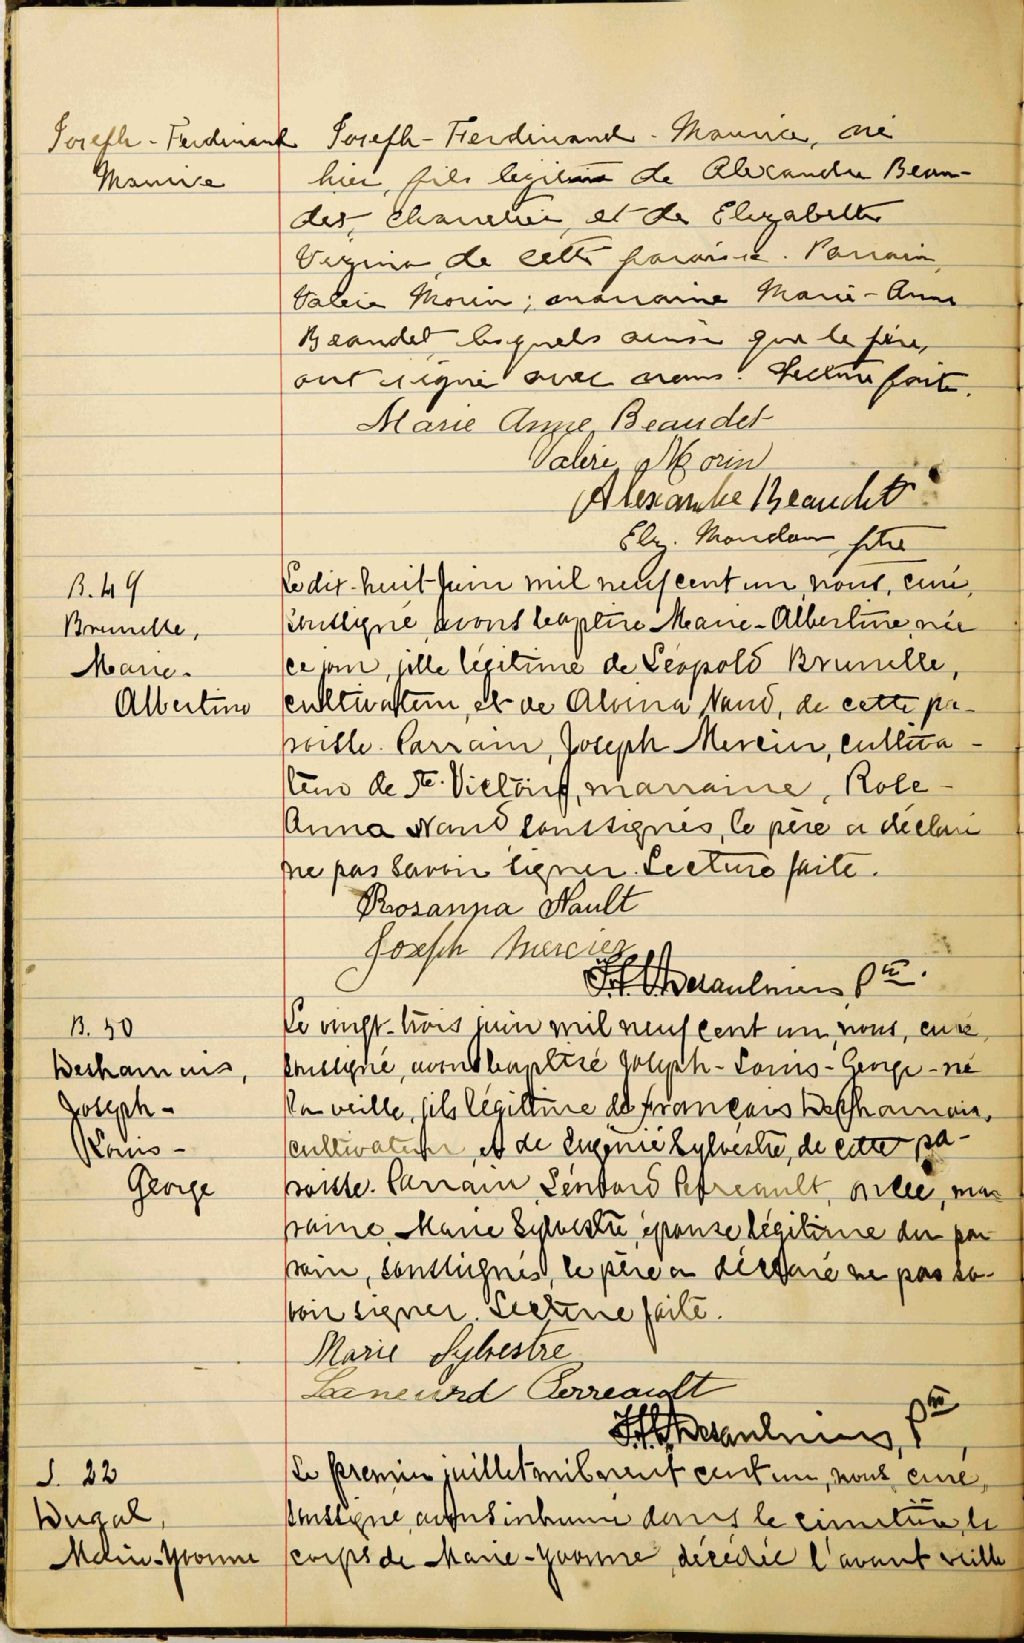 Joseph-Ferdinand
Maurice
Joseph-Ferdinand-Maurice, né
hier, fils légitime de Alexandre Beau-
det, charretier, et de Elizabeth
Vézina, de cette paroisse. Parrain,
Valérie Morin; marraine Marie-Anne
Beaudet lesquels ainsi que le père,
ont signé avec nous. Lecture faite.
Marie Anne Beaudet
Valéri Morin
Alexandre Beaudet
Elz. Mondou ptre
B. 49
Brunelle,
Marie-
Albertine
Le dix-huit juin mil neuf cent un, nous, curé,
soussigné, avons baptisé Marie-Albertine, née
ce jour, fille légitime de Léopold Brunelle,
cultivateur, et de Alvina Naud, de cette pa-
roisse. Parrain, Joseph Mercier, cultiva-
teur de Ste. Victoire, marraine, Rose-
Anna Naud soussignés, le père a déclaré
ne pas savoir signer. Lecture faite.
Rosanna Nault
Joseph Mercier
Desaulniers Ptre.
B. 50
Desharnais,
Joseph-
Louis-
George
Le vingt-trois juin mil neuf cent un, nous, curé,
soussigné, avons baptisé Joseph-Louis-George-né
la veille, fils légitime de François Desharnais,
cultivateur, et de Eugénie Sylvestre, de cette pa-
roisse. Parrain, Léonard Perreault, oncle, mar-
raine, Marie Sylvestre, épouse légitime du par-
rain, soussignés, le père a déclaré ne pas sa-
voir signer. Lecture faite.
Marie Sylvestre
Laneurd Perreault
Desaulniers, Ptre
S. 22
Dugal,
Marie-Yvonne
Le premier juillet mil neuf cent un, nous, curé,
soussigné, avons inhumé dans le cimetière, le
corps de Marie-Yvonne, décédée l'avant veille